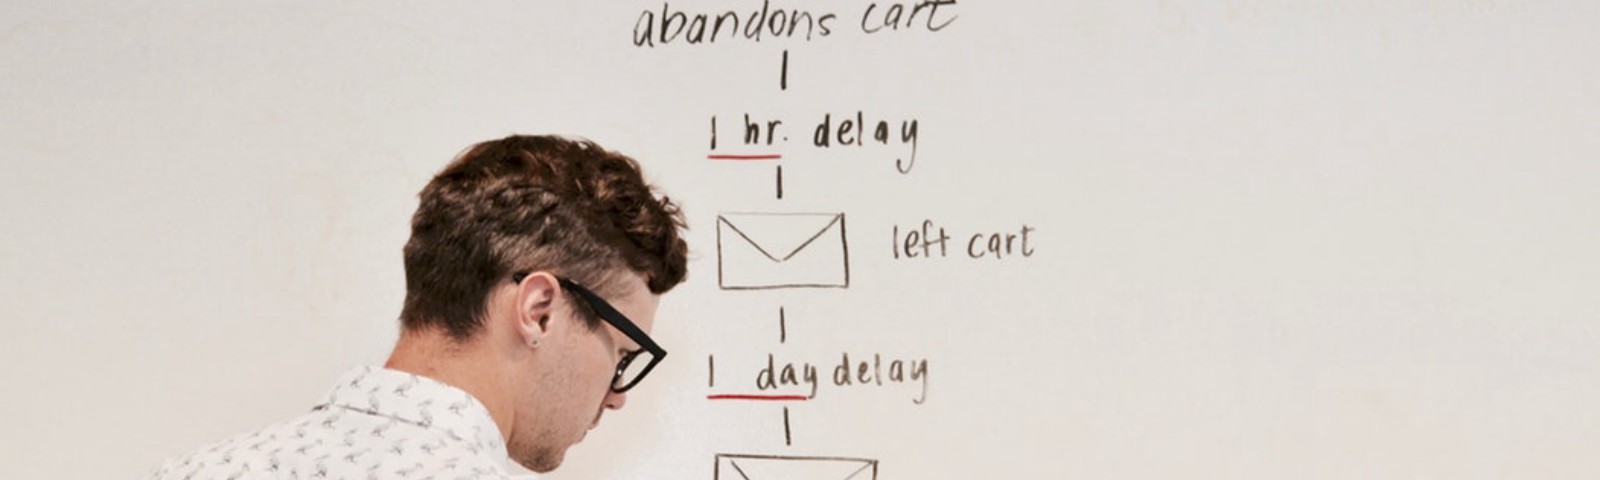 abandons cart
1 hr. delay
left cart
1 day delay